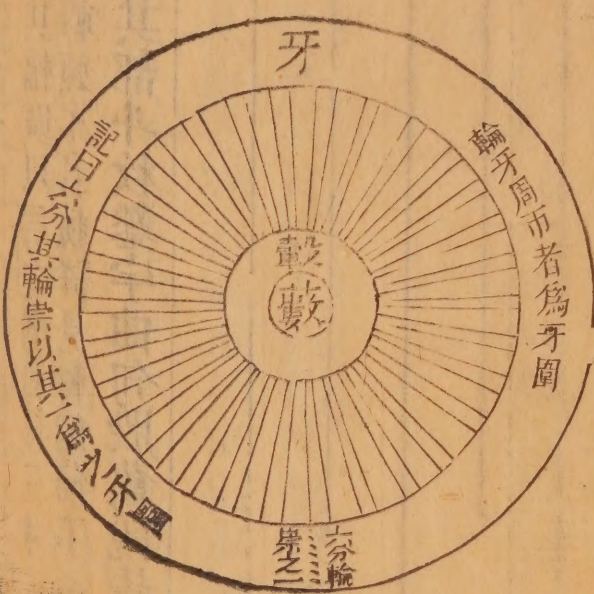 牙
輪牙周帀者爲牙圍
記曰六分其輪崇以其一爲之牙圍
轂
藪
六分輪
崇之一